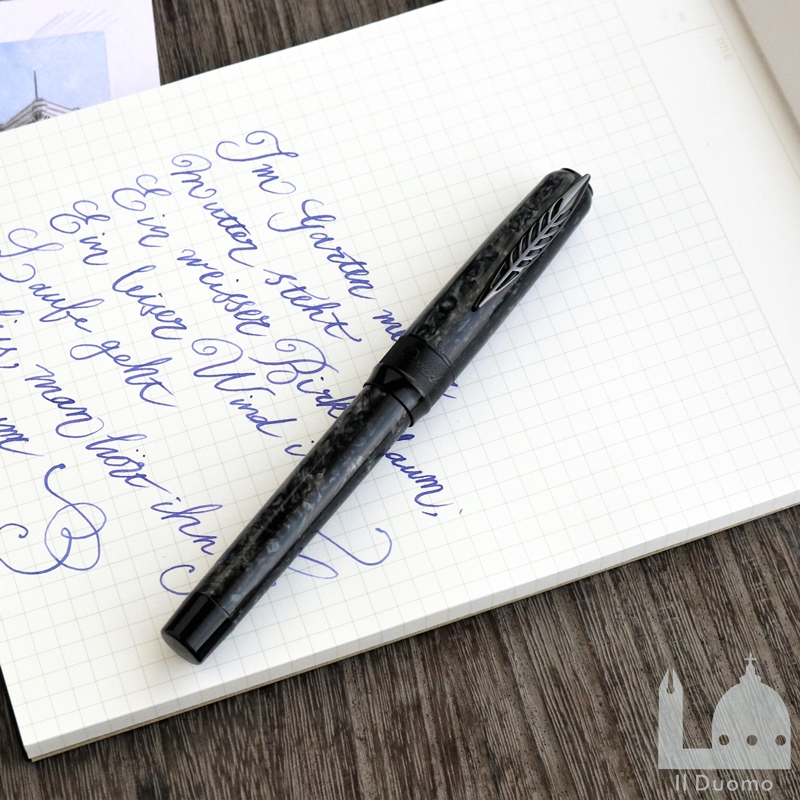 Im Garten
Mutter steht
Ein weisser Birk aum,
Ein leiser Wind
Laufe geht
man hört ihn
TITLE
Il Duomo